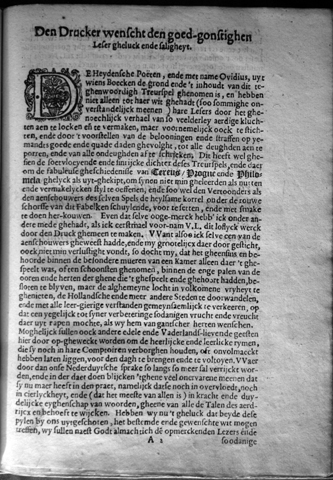 Den Drucker wenscht den goed-gonstighen
Leser gheluck ende saligheyt.
DE Heydensche Poëten, ende met name Ovidius, uyt
wiens Boecken de grond ende 't inhoudt van dit te-
ghenwoordigh Treurspel ghenomen is, en hebben
niet alleen tot haer wit ghehadt (soo sommighe on-
verstandighe meenen) hare Lesers door het ghe-
noechlijck verhael van so veelderley aerdige kluch-
ten aen te locken ofte vermaken, maer voornemelijck oock te stich-
ten, ende door 't voorstellen van de belooningen ende straffen op ye-
mandts goede ende quade daden ghevolght, tot alle deughden aen te
porren, ende van alle ondeughden af te schricken. Dit heeft wel ghe-
sien de seer vloeyende ende sinrijcke dichter deses Treurspels, ende daer
om de fabuleuse gheschiedenisse van Tereus, Progne ende Philo-
mela ghelijck als uyt-ghekipt, om synen niet min gheleerden als nutten
ende vermakelijcken styl te oeffenen, ende soo wel den Vertoonders als
den aenschouwers des selven Spels de heylsame korrel onder de rouwe
schorsse van dat Fabelken schuylende, voor te setten, ende met smake
te doen her-kouwen. Even dat selve ooge-merck hebb' ick onder an-
dere mede ghehadt, als ick eerstmael voor-nam V.L. dit loflyck werck
door den Druck ghemeen te maken. VVant alsoo ick selve een van de
aenschouwers gheweest hadde, ende my grootelijcx daer over gesticht,
oock niet min verlustight vonde, so dochte my, dat het gheensins en be-
hoorde binnen de besondere mueren van een kamer alleen daer 't ghe-
speelt was, ofte in schoonsten ghenomen, binnen de enge palen van de
ooren ende herten der ghene die 't ghespeelt ende ghehoort hadden, be-
sloten te blyven, maer de alghemeyne locht in volkomene vryheyt te
ghenieten, de Hollandtsche ende meer andere Steden te doorwandelen,
ende met alle leer-gierige verstanden gemeynsaemlijck te verkeeren, op
dat een yegelijck tot syner verbeteringe sodanigen vrucht ende vreucht
daer uyt rapen mocht, als wy hem van gantscher herten wenschen.
Moghelijck sullen noch andere edele ende Vaderland-lievende geesten
hier door op-ghewecket worden om de heerlijcke ende leerlijcke rymen,
die sy noch in hare Comptoiren verborghen houden, oft onvolmaeckt
hebben laten liggen, voor den dagh te brengen ende te voltoyen. VVaer
door dan onse Nederduytsche sprake so langs so meer sal verrijckt wor-
den, ende in der daet doen blijcken 't ghene veel onervarene meenen dat
sy nu maer heeft in den praet, namelijck datse noch in overvloedt, noch
in cierlyckheyt, ende (dat het meeste van allen is) in kracht ende duy-
delijcke eyghenschap van woorden, gheene van alle de Talen des aerd-
rijcx en behoeft te wijcken. Hebben wy nu 't gheluck dat beyde dese
pylen by ons uytgeschoten, het bestemde ende gewenschte wit mogen
treffen, wy sullen naest Godt almachtich dē opmerckenden Lezers ende
A 2
soodanige